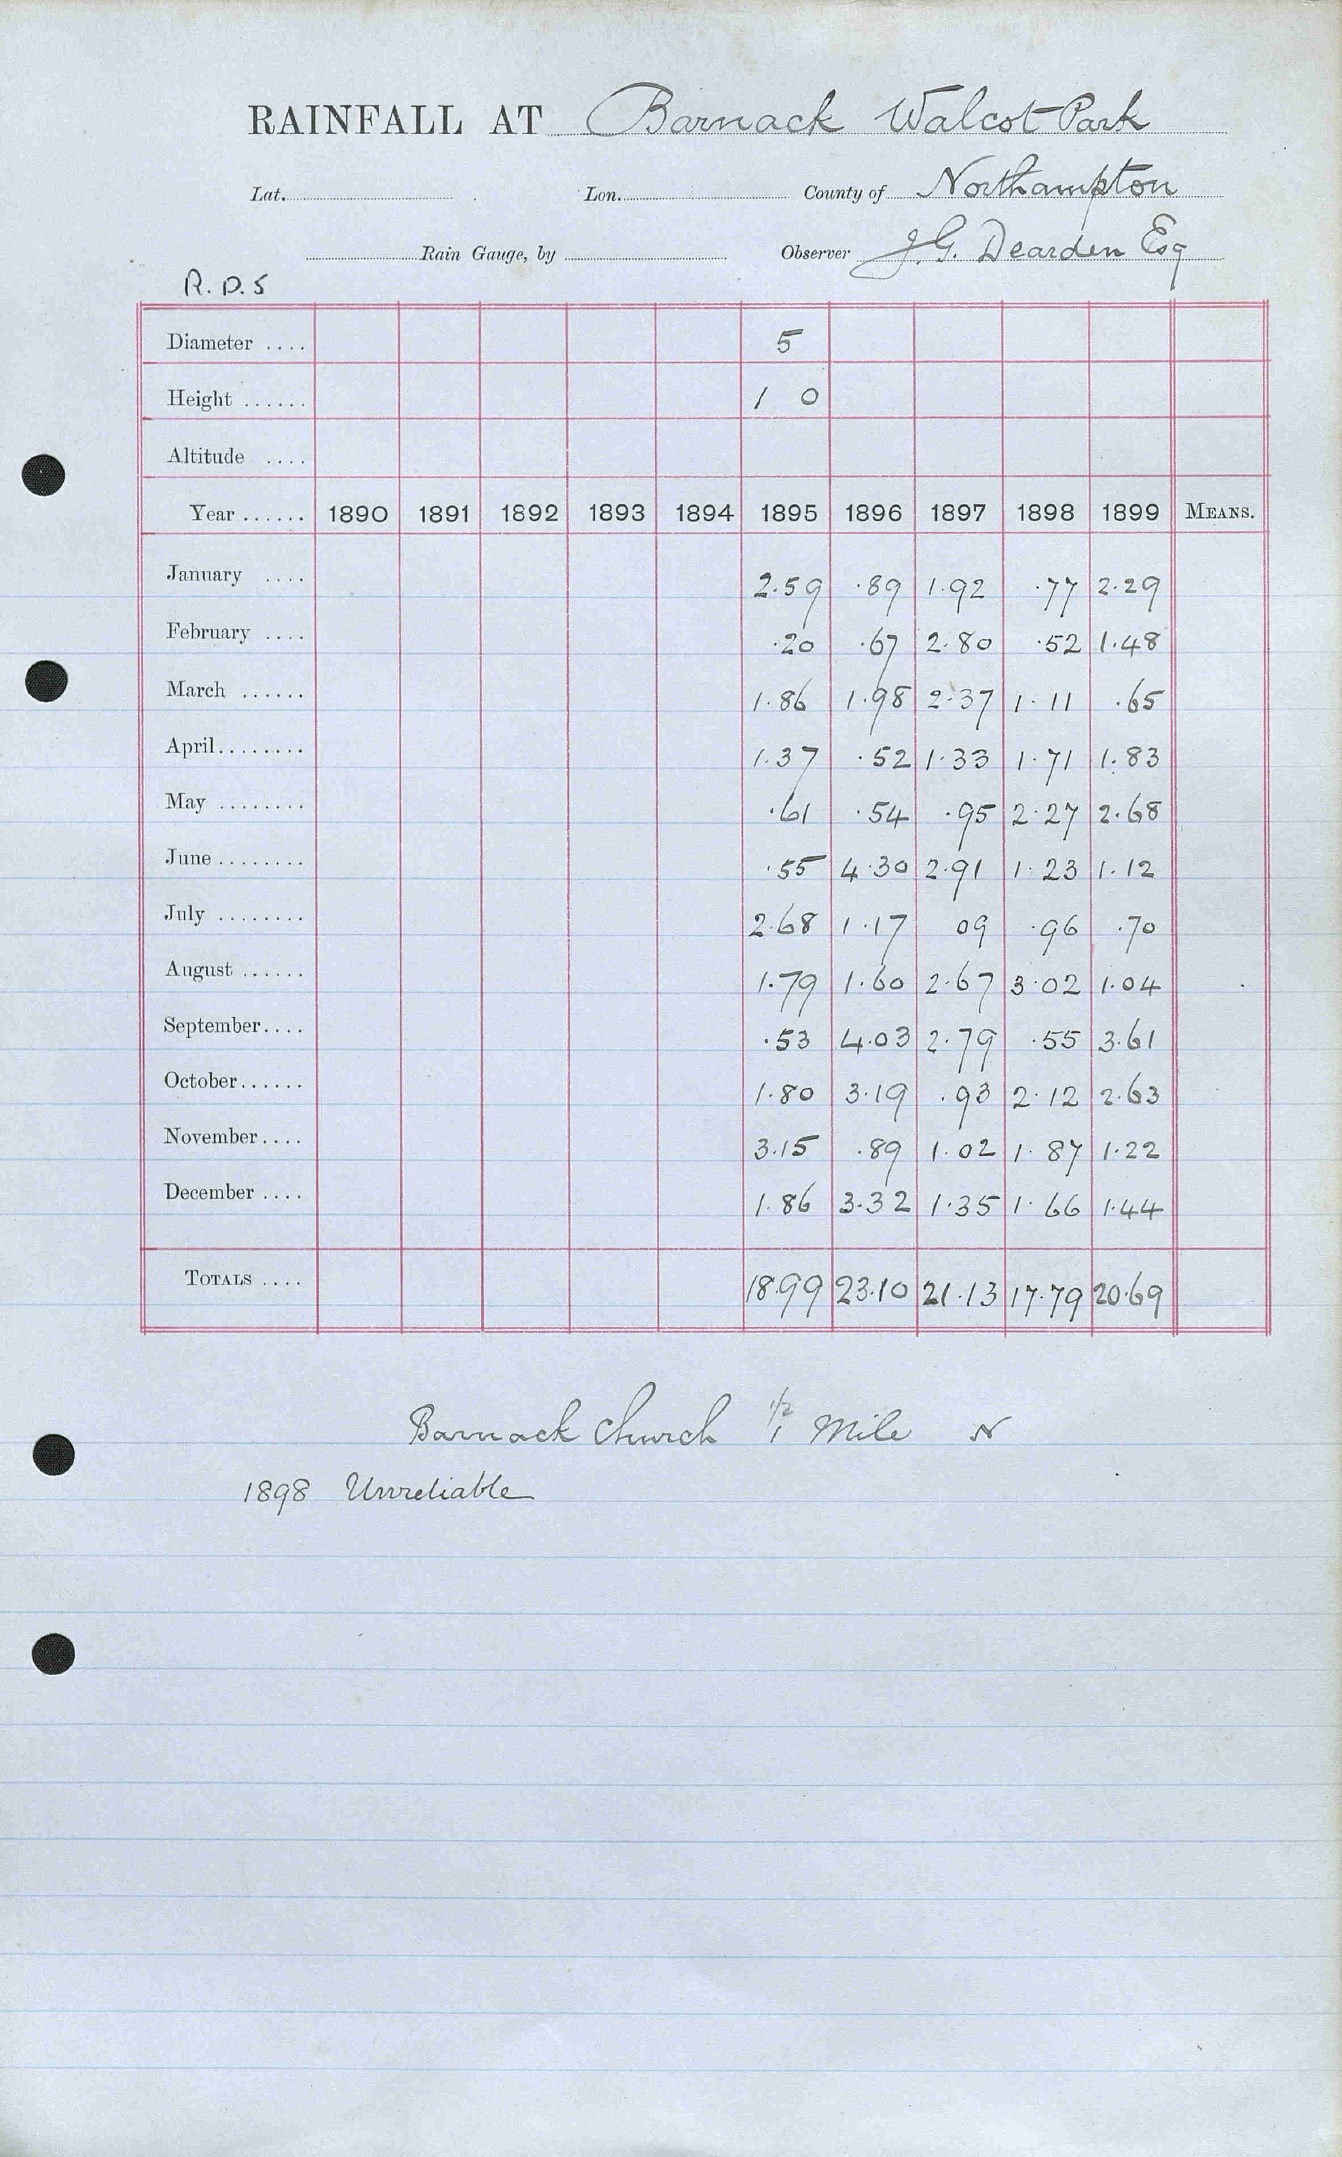 RAINFALL AT Barnack Walcot Park
Lat. Lon. County of Northampton
Rain Gauge, by Observer J. G. Dearden Esq
R. D. 5
Diameter .... 5
Height ...... 1 0
Altitude ....
Year ...... 1890 1891 1892 1893 1894 1895 1896 1897 1898 1899 MEANS.
January .... 2.59 .89 1.92 .77 2.29
February .... .20 .67 2.80 .52 1.48
March ...... 1.86 1.98 2.37 1.11 .65
April........ 1.37 .52 1.33 1.71 1.83
May ........ .61 .54 .95 2.27 2.68
June ........ .55 4.30 2.91 1.23 1.12
July ........ 2.68 1.17 09 .96 .70
August ...... 1.79 1.60 2.67 3.02 1.04
September.... .53 4.03 2.79 .55 3.61
October...... 1.80 3.19 .93 2.12 2.63
November.... 3.15 .89 1.02 1.87 1.22
December .... 1.86 3.32 1.35 1.66 1.44
TOTALS .... 18.99 23.10 21.13 17.79 20.69
Barnack Church 1/2 Mile N
1898 Unreliable